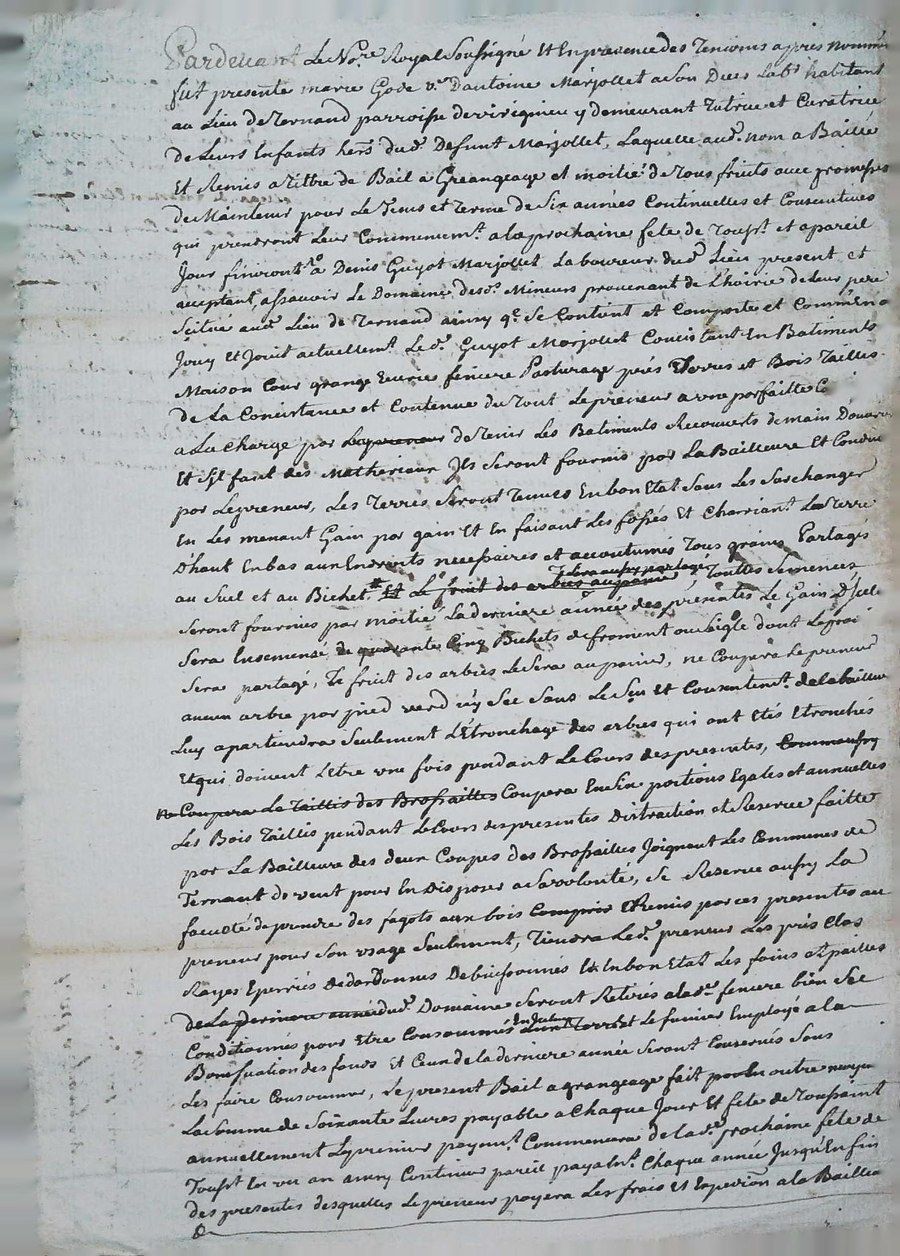 Pardevant Le No.re Royal Soussigné Et En presence des Temoins apres nommés
fut presente marie Gode v.e Dantoine Marjollet a son Deces Lab.r habitant
au Lieu de Ternand parroisse de virignieu y demeurant Tutrice et Curatrice
de Leurs Enfants hers. du d. Defunt Marjollet, Laquelle au d. nom a Baillé
Et Remis a Tittre de Bail a Greangeage et moitié de Tous fruits avec promesses
de Maintenir pour Le Tems et Terme de Six années Continuelles et Consecutives
qui prendront Leur Commencem.t a la prochaine fete de Touss.t et apareil
Jour finiront a Denis Guyot Marjollet Laboureur du d. Lieu present et
acceptant, assavoir Le Domaine des d. Mineurs provenant de L'hoirie de Leur pere
Scitué au d. Lieu de Ternand ainsy q.e Se Contient et Comporte et Comme en a
Jouy Et Jouit actuellem.t Le d. Guyot Marjollet Consistant En Batiments
Maison Cour grange Ecurie feniere Pasturage prés Terres et Bois Taillis
de La Consistance et Contenue du Tout Le preneur a une parfaitte C
a La Charge par Le preneur de Tenir Les Batiments Recouverts de main Douvrier
Et Sil faut des Matheriaux Ils Seront fournis par La Bailleure Et Conduits
par Le preneur, Les Terres Seront Tenues En bon Etat Sans Les Surchanger
En Les menant Gain par gain Et En faisant Les fossés Et Charriant La Terre
D'haut En bas aux Endroits necessaires et accoutumés Tous grains Partagés
au Suel et au Bichet. Et Le fruit des arbres au panier Sera aussy partagé, Touttes Semences
Seront fournies par moitié La derniere année des presentes Le Gain D'Icelle
Sera Ensemensé de quarante Cinq Bichets de froment ou Seigle dont Le
Sera partagé, Le fruit des arbres Le Sera au panier, ne Coupera Le preneur
aucun arbre par pied verd ny Sec Sans Le Sçu Et Consentem.t de la bailleure
Luy apartiendra Seulement L'Etronchage des arbres qui ont Etés Etronchés
Et qui doivent L'Etre une fois pendant Le Cours des presentes, Comme aussy
ne Coupera Le Taillis des Brossailles Coupera En Six portions Egales et annuelles
Les Bois Taillis pendant Le Cours des presentes Distraction et Reserve faitte
par La Bailleure des deux Coupes des Brossailles Joignant Les Communes de
Ternant de vent pour En disposer a Sa volonté, Se Reserve aussy La
faculté de prendre des fagots aux bois Compris et Remis par ces presentes au
preneur pour Son usage Seulement, Tiendra Le d. preneur Les prés Clos
Rayes Eperriés Dedardonnes Debuissonnés Et En bon Etat Les foins et pailles
de La derniere année du d. Domaine Seront Retirés a la d. feniere bien Sec
Conditionnés pour Etre Consommés En Icelui et Le fumier Employé a la
Bonification des fonds et Ceux de la derniere année Seront Conservés Sans
Les faire Consommer, Le present Bail a grangeage fait en outre moyen
La Somme de Soixante Livres payable a Chaque Jour Et fete de Toussaint
annuellement Le premier payem.t Commencera de La d. prochaine fete de
Touss.t En un an ainsy Continuer pareil payem.t Chaque année Jusqu'En fin
des presentes desquelles Le preneur payera Les frais Et Expedition a la Bailleu